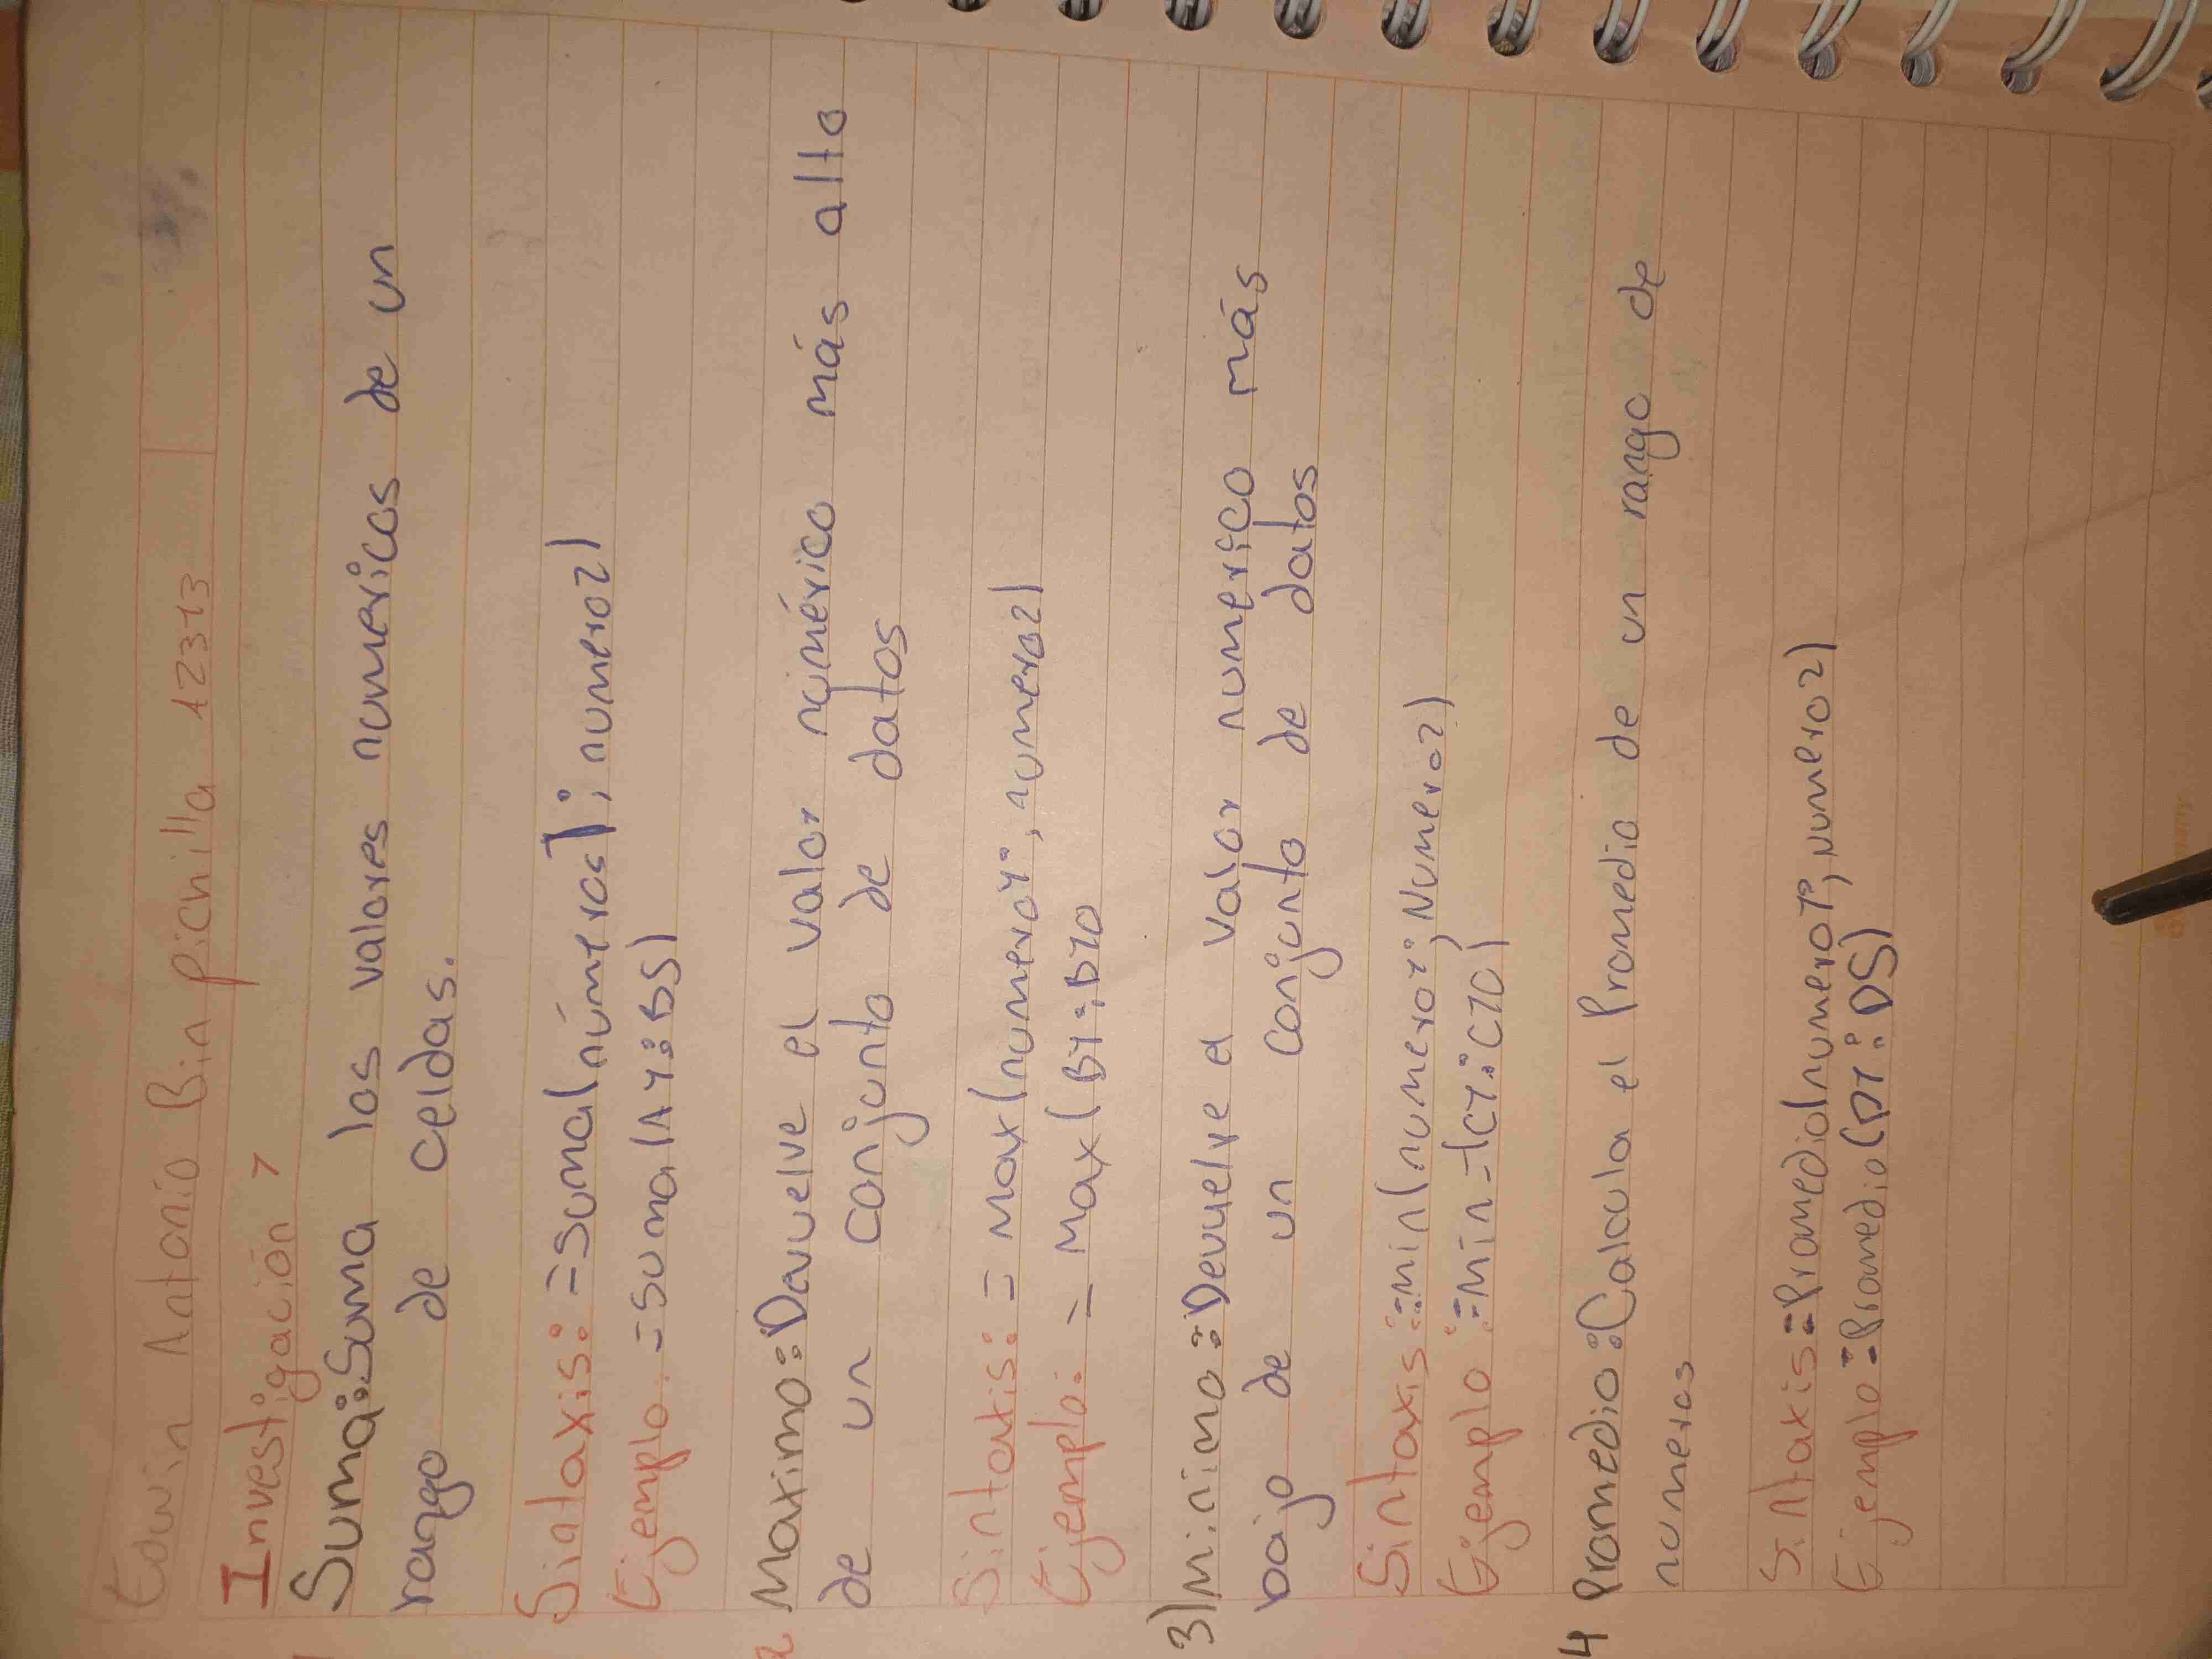 Edwin Antonio Bin pichilla 12313
Investigación 1
Suma: Suma los valores numericos de un
rango de celdas.
Sintaxis: =suma(números1; numero2)
Ejemplo: =suma(A1:B5)
2 Maximo: Devuelve el valor numérico más alto
de un conjunto de datos
Sintaxis: = Max(numero1; numero2)
Ejemplo: = Max(B1:B10
3) Minimo: Devuelve el valor numerico más
bajo de un conjunto de datos
Sintaxis: =min(numero1; Numero2)
Ejemplo: =Min-(C1:C10)
4 Promedio: Calcula el Promedio de un rango de
numeros
Sintaxis: =Promedio(numero1, numero2)
Ejemplo: =Promedio(D1:D5)